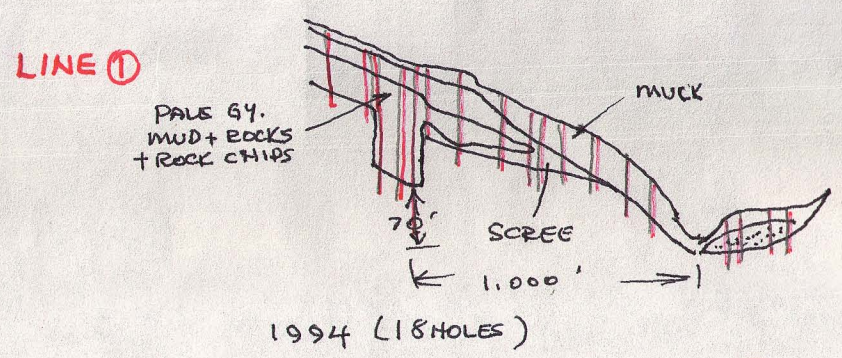 LINE ①
PALE GY.
MUD + ROCKS
+ ROCK CHIPS
MUCK
SCREE
70'
1,000'
1994 (18 HOLES)